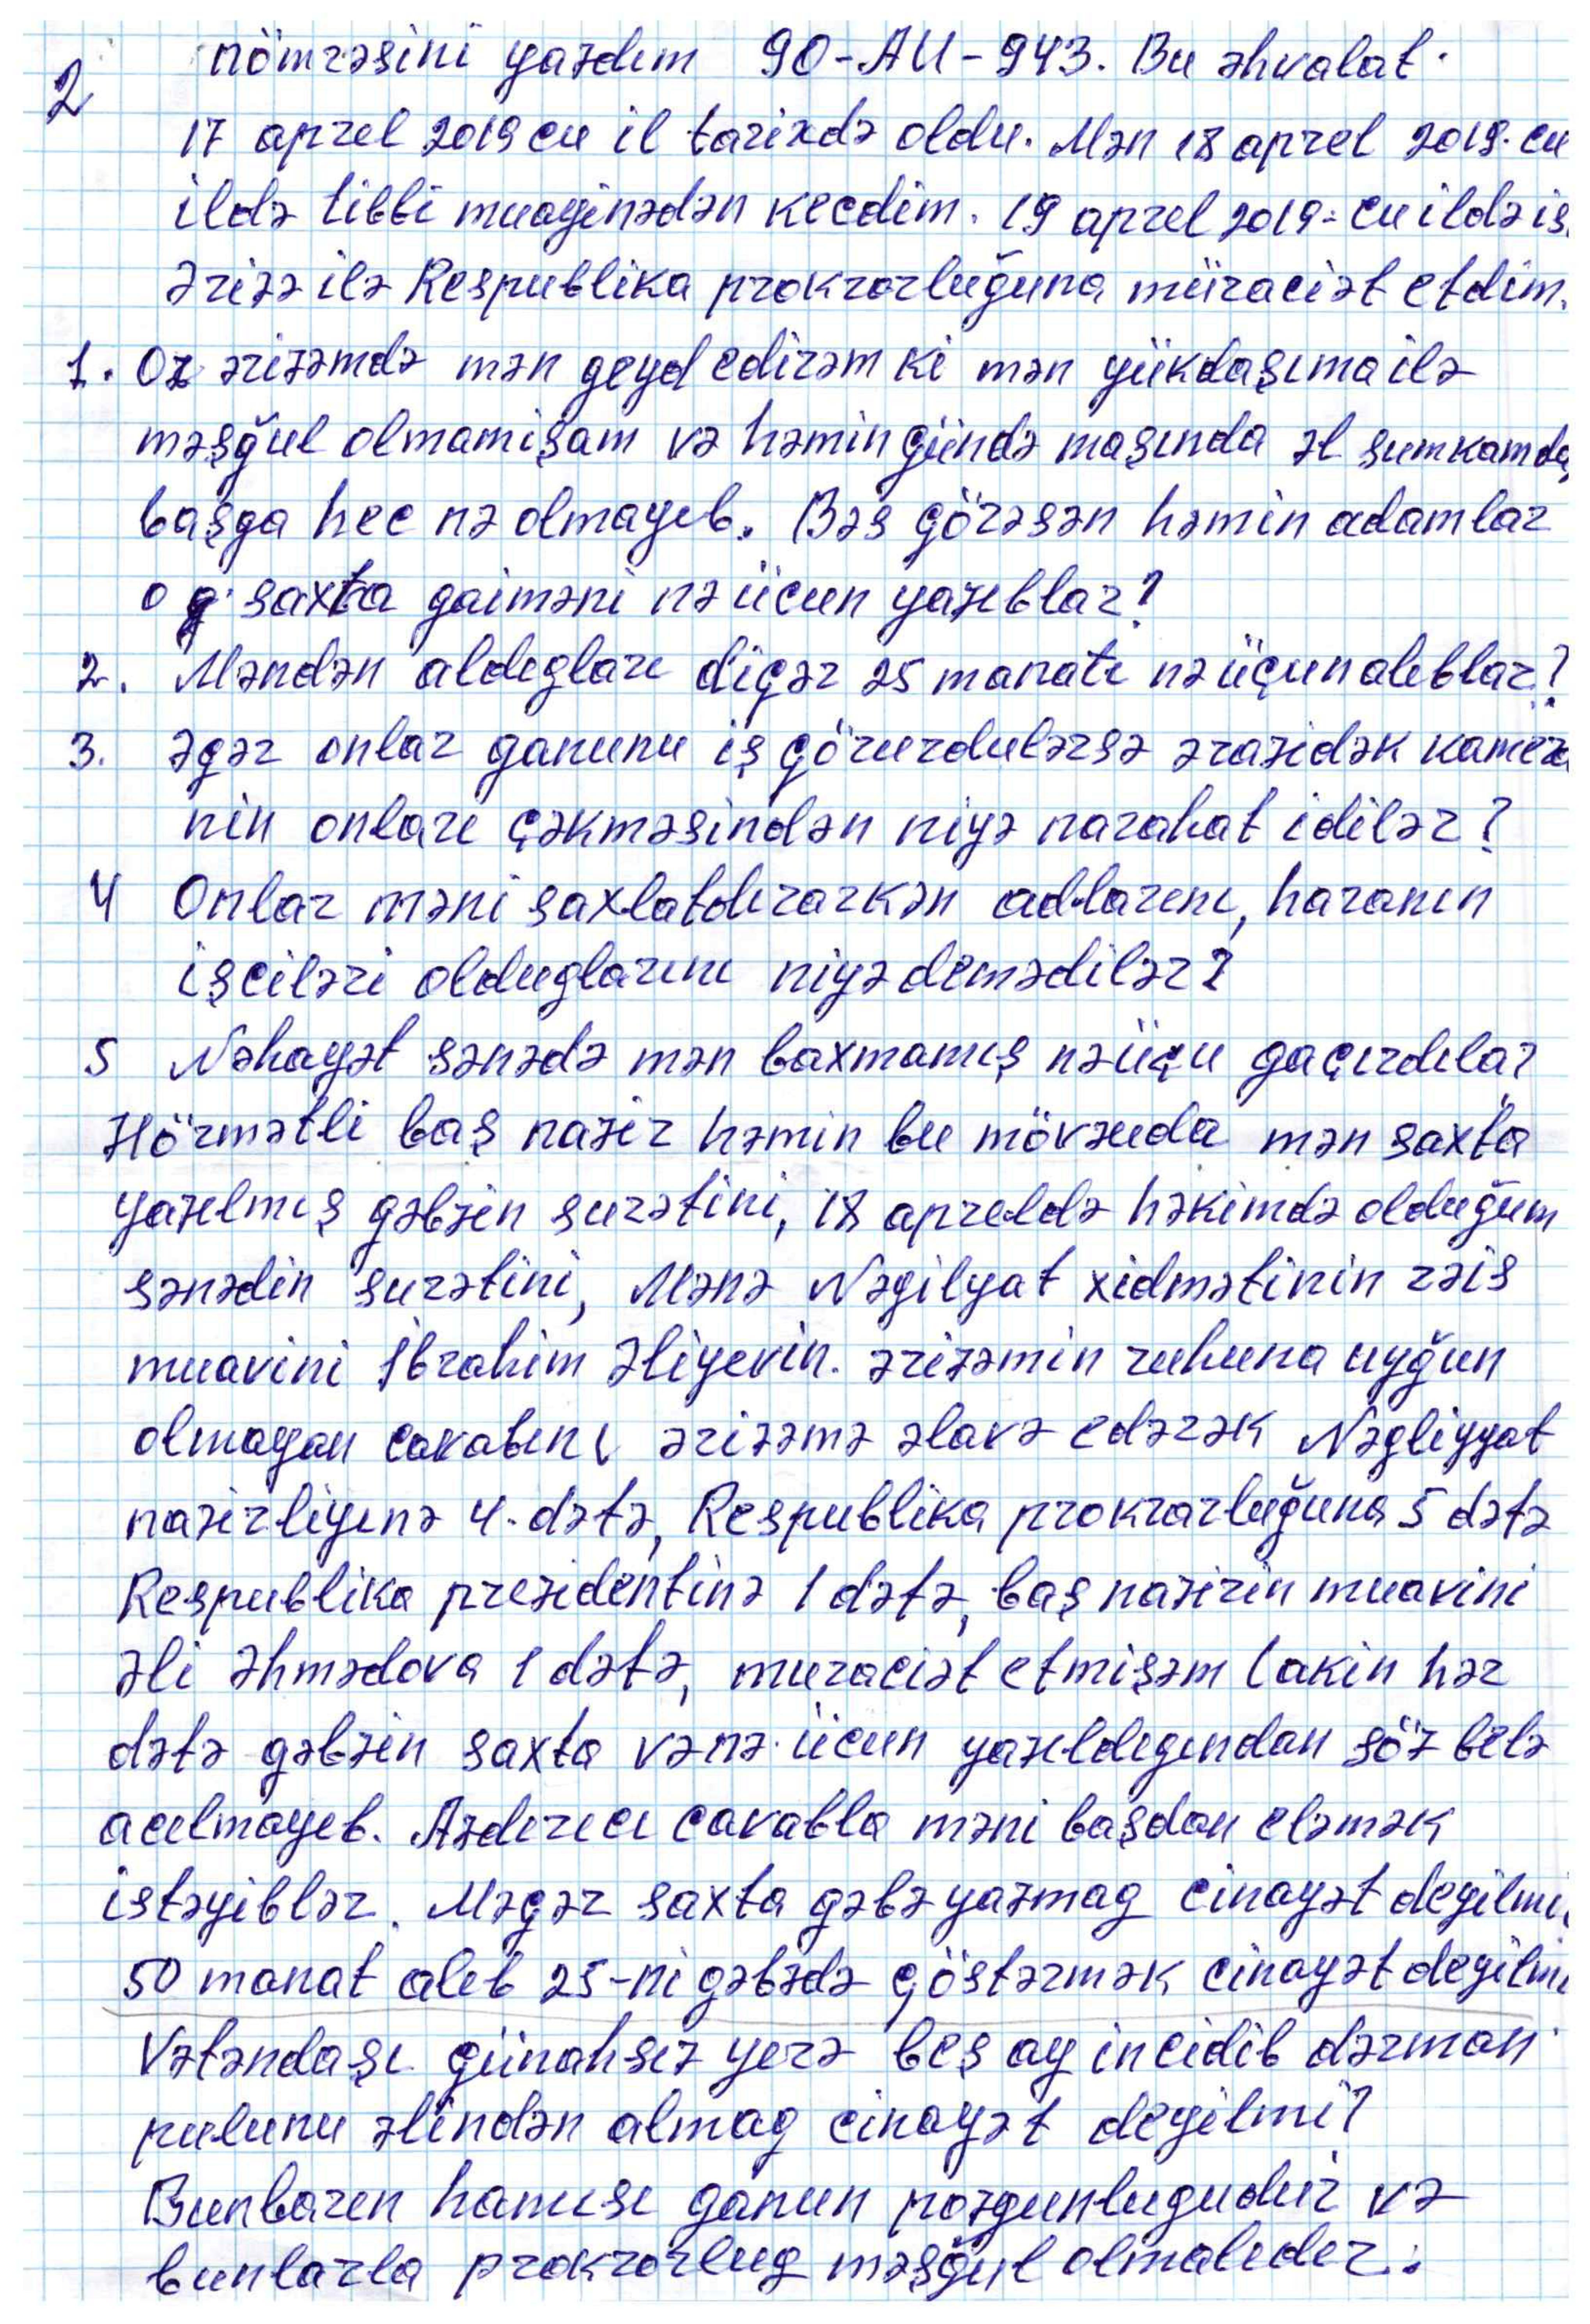 2 nömrəsini yazdım 90-AU-943. Bu əhvalat.
17 aprel 2019 cu il tarixdə oldu. Mən 18 aprel 2019. cu
ildə tibbi muayinədən kecdim. 19 aprel 2019-cu ildə is
Ərizə ilə Respublika prokrorluğuna müraciət etdim.
1. Oz ərizəmdə mən geyd edirəm ki mən yükdaşıma ilə
məşğul olmamişam və həmin gündə maşında əl sumkamda
başga hec nə olmayıb. Bəs görəsən həmin adamlar
o saxta gaiməni nə ücun yazıblar?
2. Məndən aldıgları digər 25 manatı nə üçun alıblar?
3. əgər onlar ganunu iş görurdulərsə ərazidək kamera
nin onları çəkməsindən niyə narahat idilər?
4 Onlar məni saxlatdırarkən adlarını, haranın
işciləri olduglarını niyə demədilər?
5 Nəhayət sənədə mən baxmamış nəüçu gaçırdılar
Hörmətli baş nazir həmin bu mövzuda mən saxta
yazılmış gəbzin surətini, 18 apreldə həkimdə olduğum
sənədin surətini, Mənə Nəgilyat xidmətinin rəis
muavini İbrahim Əliyevin. ərizəmin ruhuna uyğun
olmayan cavabını ərizəmə əlavə edərək Nəgliyyat
nazirliyinə 4. dəfə, Respublika prokrarluğuna 5 dəfə
Respublika prezidentinə 1 dəfə, baş nazirin muavini
Əli Əhmədova 1 dəfə, muraciət etmişəm lakin hər
dəfə gəbzin saxta və nə ücun yazıldıgından söz belə
acılmayıb. Azdırıcı cavabla məni başdan eləmək
istəyiblər. Məgər saxta gəbz yazmag cinayət deyilmi
50 manat alıb 25-ni gəbzdə göstərmək cinayət deyilmi
Vətəndaşı günahsız yerə beş ay incidib dərman
pulunu əlindən almag cinayət deyilmi?
Bunların hamısı ganun pozgunlugudur və
bunlarla prokrorlug məşğul olmalıdır.